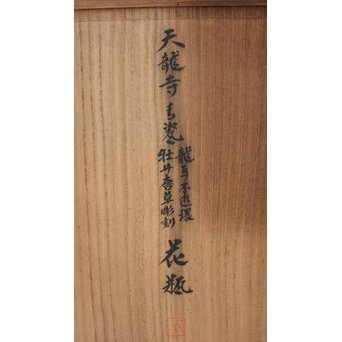 天龍寺青瓷
龍耳不遊環
牡丹唐草彫刻
花瓶